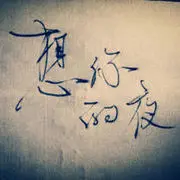 想你
的夜